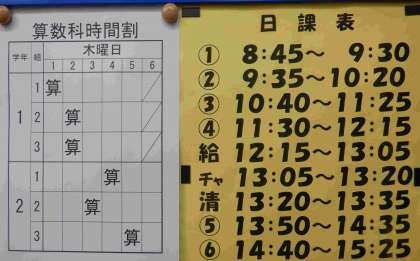 算数科時間割
学年 組 木曜日
1 2 3 4 5 6
1
1 算
2 算
3 算
2
1 算
2 算
3 算
日課表
① 8:45～ 9:30
② 9:35～10:20
③ 10:40～11:25
④ 11:30～12:15
給 12:15～13:05
チャ 13:05～13:20
清 13:20～13:35
⑤ 13:50～14:35
⑥ 14:40～15:25